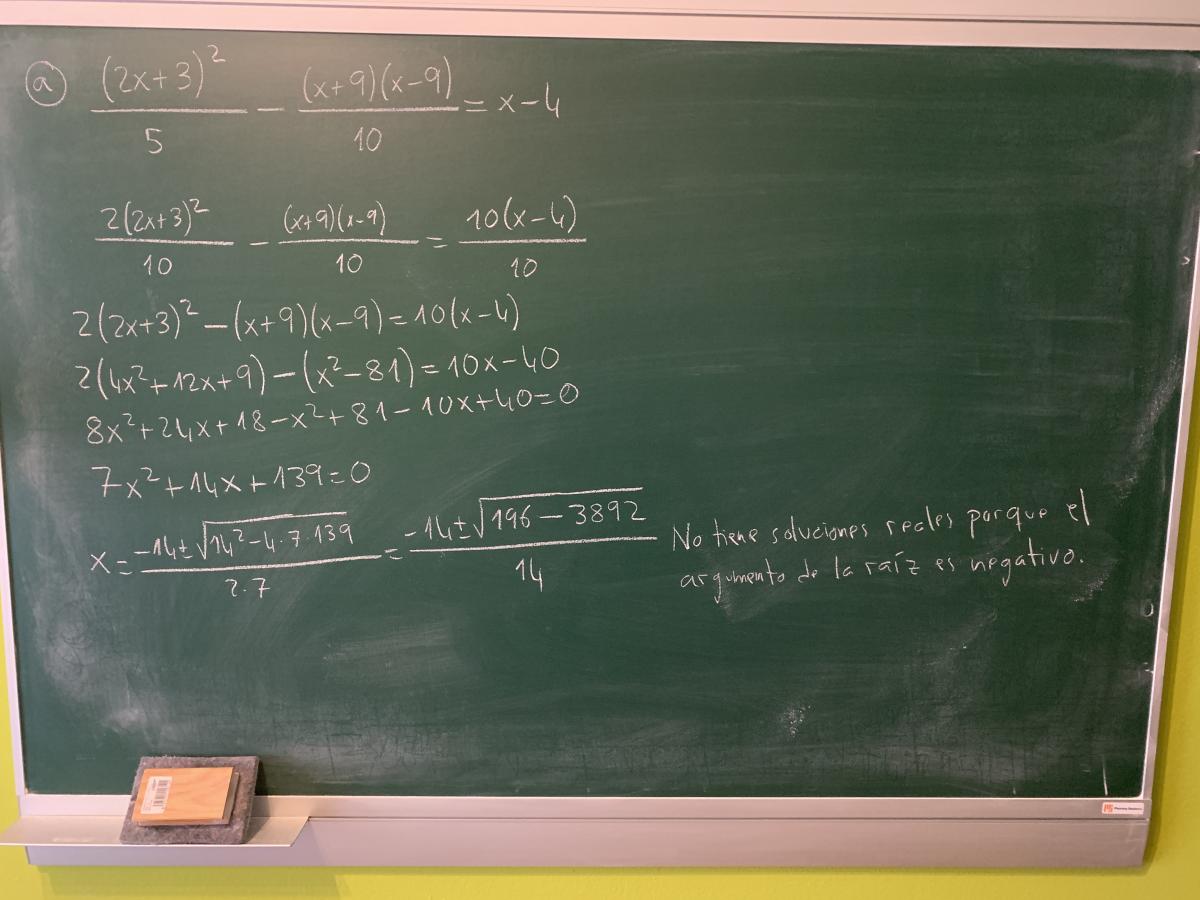 a (2x+3)²/5 − (x+9)(x−9)/10 = x−4
2(2x+3)²/10 − (x+9)(x−9)/10 = 10(x−4)/10
2(2x+3)² − (x+9)(x−9) = 10(x−4)
2(4x²+12x+9) − (x²−81) = 10x−40
8x²+24x+18−x²+81−10x+40=0
7x²+14x+139=0
x = (−14±√(14²−4·7·139))/(2·7) = (−14±√(196−3892))/14 No tiene soluciones reales porque el
argumento de la raíz es negativo.